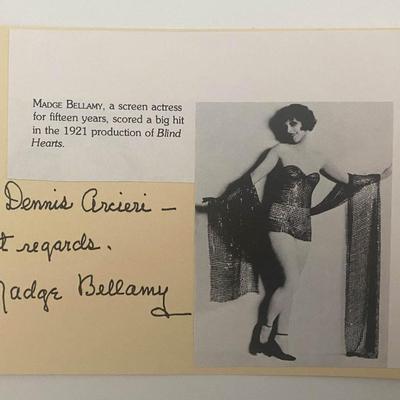 MADGE BELLAMY, a screen actress
for fifteen years, scored a big hit
in the 1921 production of Blind
Hearts.
Dennis Arcieri —
t regards.
adge Bellamy